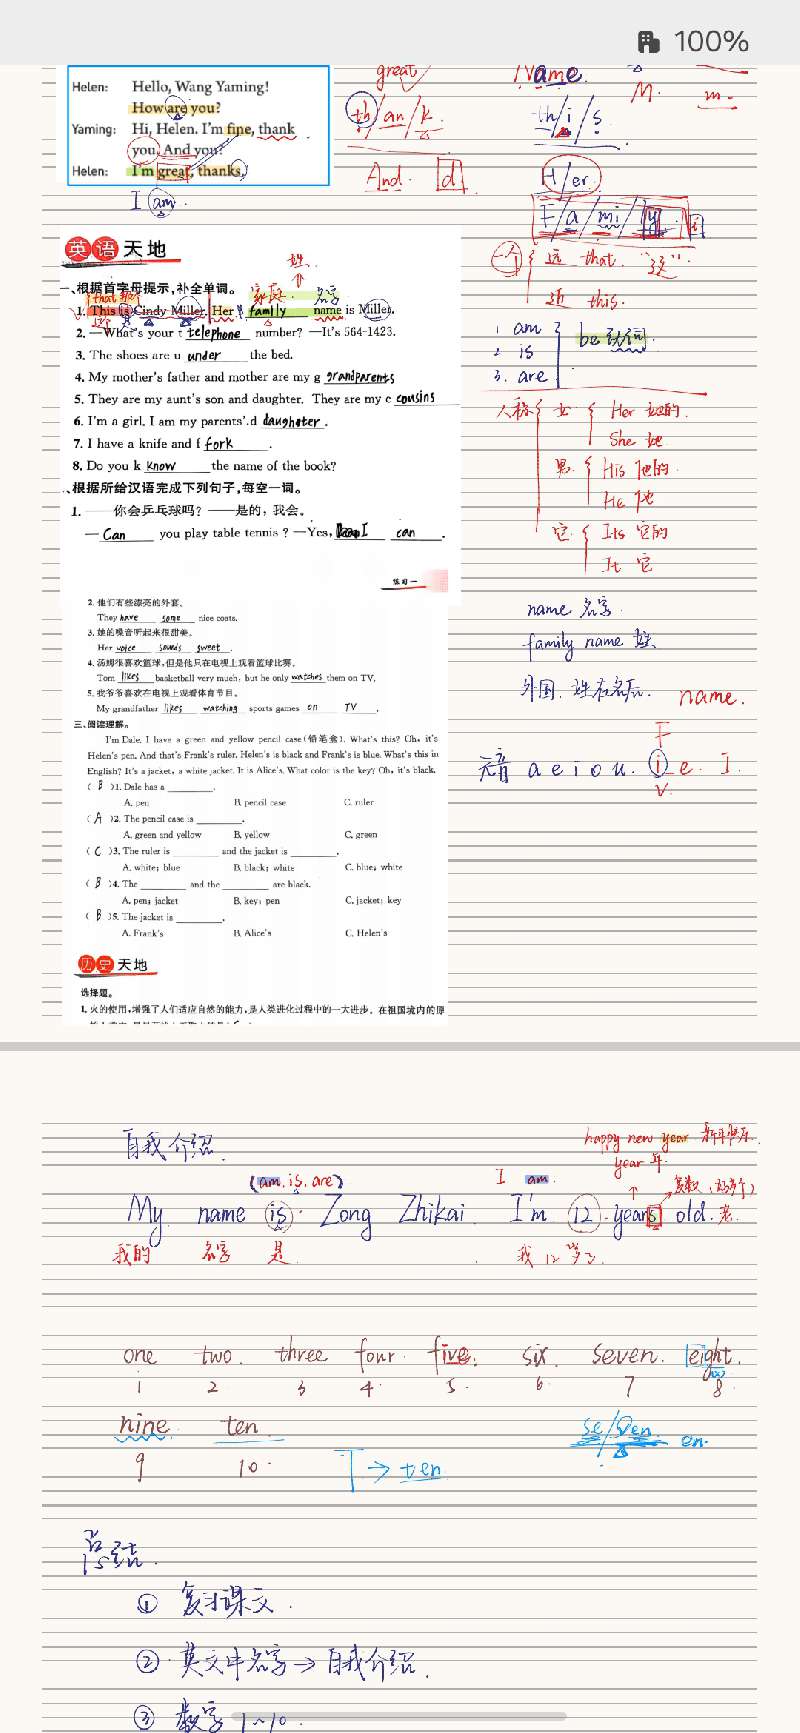 100%
Helen: Hello, Wang Yaming!
How are you?
Yaming: Hi, Helen. I'm fine, thank
you. And you?
Helen: I'm great, thanks.
I am.
great
th/an/k
And. d
Name
th/i/s
M. m.
H/er
F/a/mi/ly
一个 远 that. "这"
近 this.
1 am
2 is
3. are
be 动词.
人称 女 Her 她的.
She 她
男 His 他的.
He 他
它 Its 它的
It 它
name 名字.
family name 姓.
外国. 姓在名后.
name.
元音 a e i o u. i e. I.
F
V
英语天地
一、根据首字母提示,补全单词。
姓.
家庭. 名字
1. This is Cindy Miller. Her family name is Miller.
2. —What's your t telephone number? —It's 564-1423.
3. The shoes are u under the bed.
4. My mother's father and mother are my g grandparents
5. They are my aunt's son and daughter. They are my c cousins
6. I'm a girl. I am my parents' d daughter.
7. I have a knife and f fork.
8. Do you k know the name of the book?
、根据所给汉语完成下列句子,每空一词。
1. ——你会乒乓球吗? ——是的,我会。
— Can you play table tennis? —Yes, I can.
练习一
2. 他们有些漂亮的外套。
They have some nice coats.
3. 她的嗓音听起来很甜美。
Her voice sounds sweet.
4. 汤姆很喜欢篮球,但是他只在电视上观看篮球比赛。
Tom likes basketball very much, but he only watches them on TV.
5. 我爷爷喜欢在电视上观看体育节目。
My grandfather likes watching sports games on TV.
三、阅读理解。
I'm Dale. I have a green and yellow pencil case(铅笔盒). What's this? Oh, it's
Helen's pen. And that's Frank's ruler. Helen's is black and Frank's is blue. What's this in
English? It's a jacket, a white jacket. It is Alice's. What color is the key? Oh, it's black.
( B )1. Dale has a ______.
A. pen B. pencil case C. ruler
( A )2. The pencil case is ______.
A. green and yellow B. yellow C. green
( C )3. The ruler is ______ and the jacket is ______.
A. white; blue B. black; white C. blue; white
( B )4. The ______ and the ______ are black.
A. pen; jacket B. key; pen C. jacket; key
( B )5. The jacket is ______.
A. Frank's B. Alice's C. Helen's
历史天地
选择题。
1. 火的使用,增强了人们适应自然的能力,是人类进化过程中的一大进步。在祖国境内的原
自我介绍.
happy new year 新年快乐.
year 年.
(am. is. are) I am. 复数(好多个)
My name is Zong Zhikai I'm 12 years old. 老.
我的 名字 是 我 12 岁了.
one two. three four. five. six. seven. eight.
1 2 3 4. 5. 6. 7 8
nine ten
9 10.
T → ten
se/ven en.
总结.
① 复习课文.
② 英文中名字 → 自我介绍.
③ 数字 1~10.